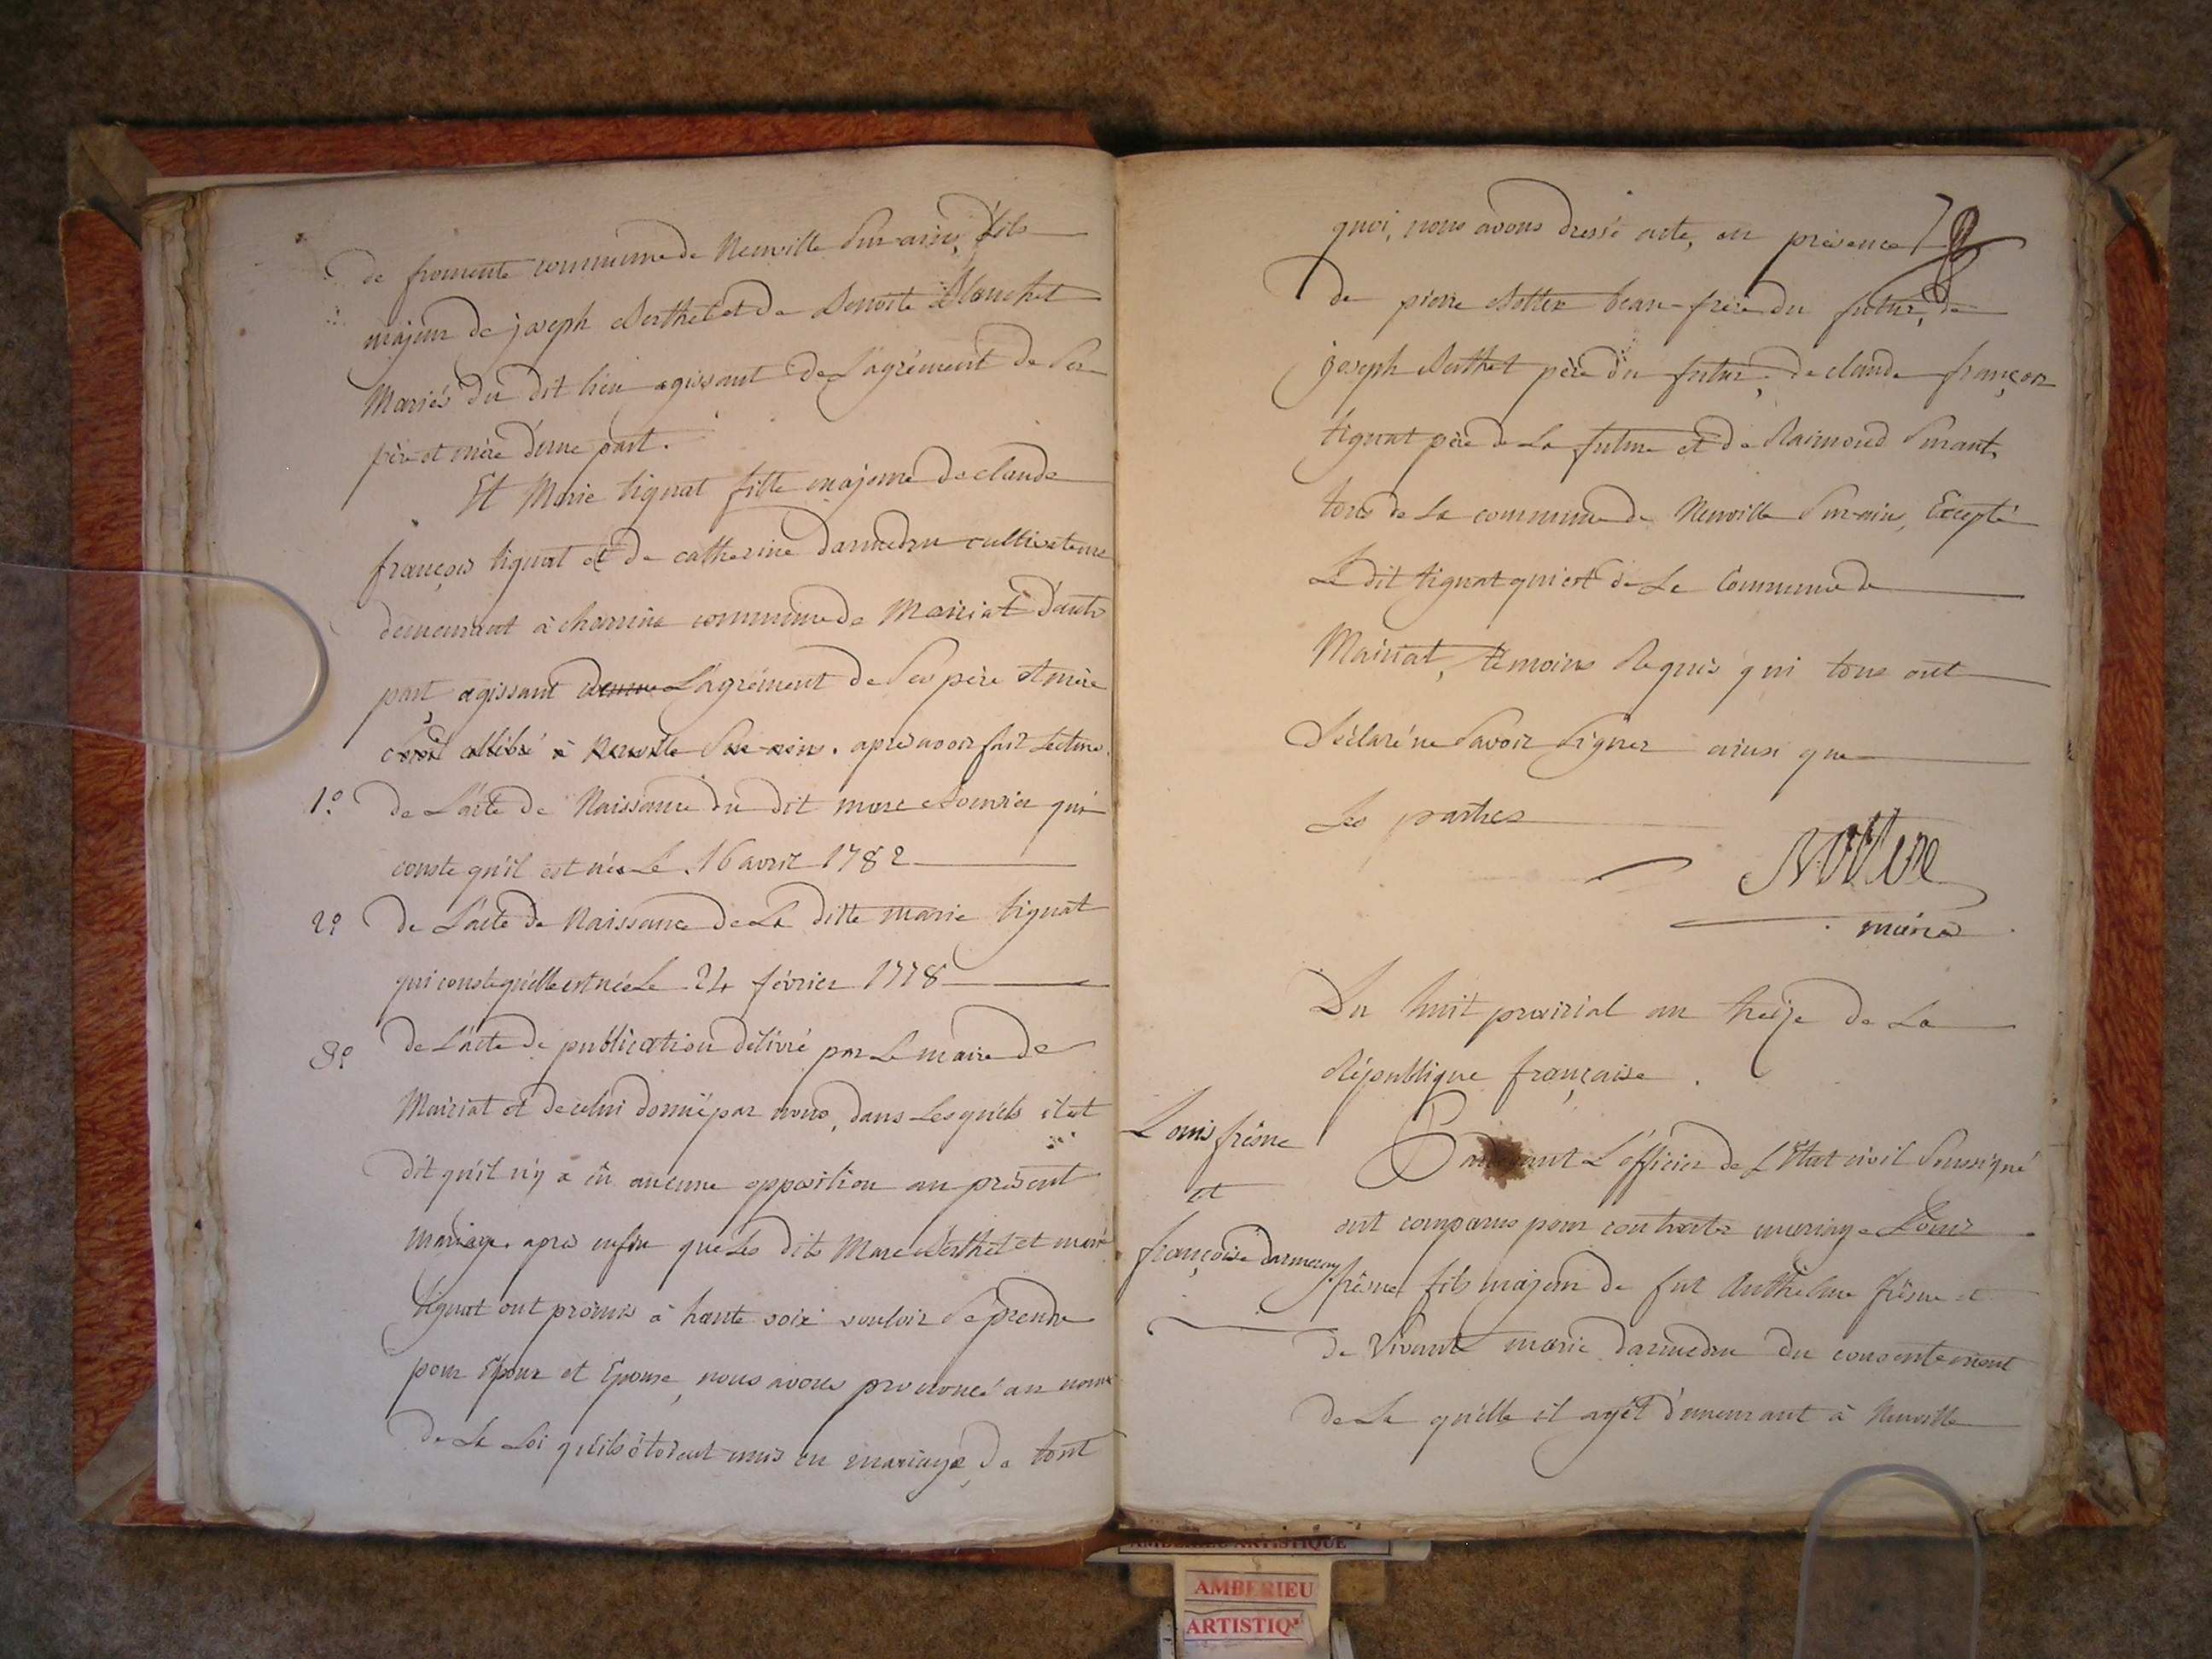 de fromente commune de Neuville Sur-ains, fils
majeur de joseph Berthet et de Benoite Blanchet
Mariés du dit lieu agissant de L'agrément de Ses
père et mère d'une part.
Et Marie tignat fille majeure de claude
françois tignat et de catherine darmedru cultivateurs
demeurant à charrina commune de Mairiat d'autr
part agissant de L'agrément de Ses père et mère
à Neuville Sur-ains. après avoir fait Lecture.
1.° de L'acte de Naissance du dit marc qui
conste qu'il est née Le 16 avril 1782
2.° de L'acte de Naissance de La ditte marie tignat
qui conste qu'elle est née Le 24 février 1778
3.° de L'acte de publication délivré par Le maire de
Mairiat et de celui donné par nous, dans Lesquels il est
dit qu'il n'y a eû aucune opposition au présent
mariage. après enfin que Les dits Marc Berthet et marie
tignat ont promis à haute voix vouloir Se prendre
pour Epoux et Epouse, nous avons prononcé au nom
de La Loi qu'ils étoient unis en mariage, de tout
quoi, nous avons dressé acte, en présence
de pierre beau-frère du futur, de
joseph Berthet père du futur, de claude françois
tignat père de La future et de Raimond Surant,
tous de La commune de Neuville Sur-ains, Excepté
Le dit tignat qui est de La Commune de
Mairiat, témoins Requis qui tous ont
Déclaré ne Savoir Signer ainsi que
Les parties
maire
Du huit prairial an treize de La
République française.
Louis frêsne
et
françoise darmezin
Pardevant L'officier de L'Etat civil Soussigné
ont comparus pour contracter mariage Louis
frêsne fils majeur de fut Anthelme frêsne et
de Vivante marie darmedru du consentement
de La quelle il agit demeurant à Neuville
AMBERIEU ARTISTIQUE
AMBERIEU
ARTISTIQ